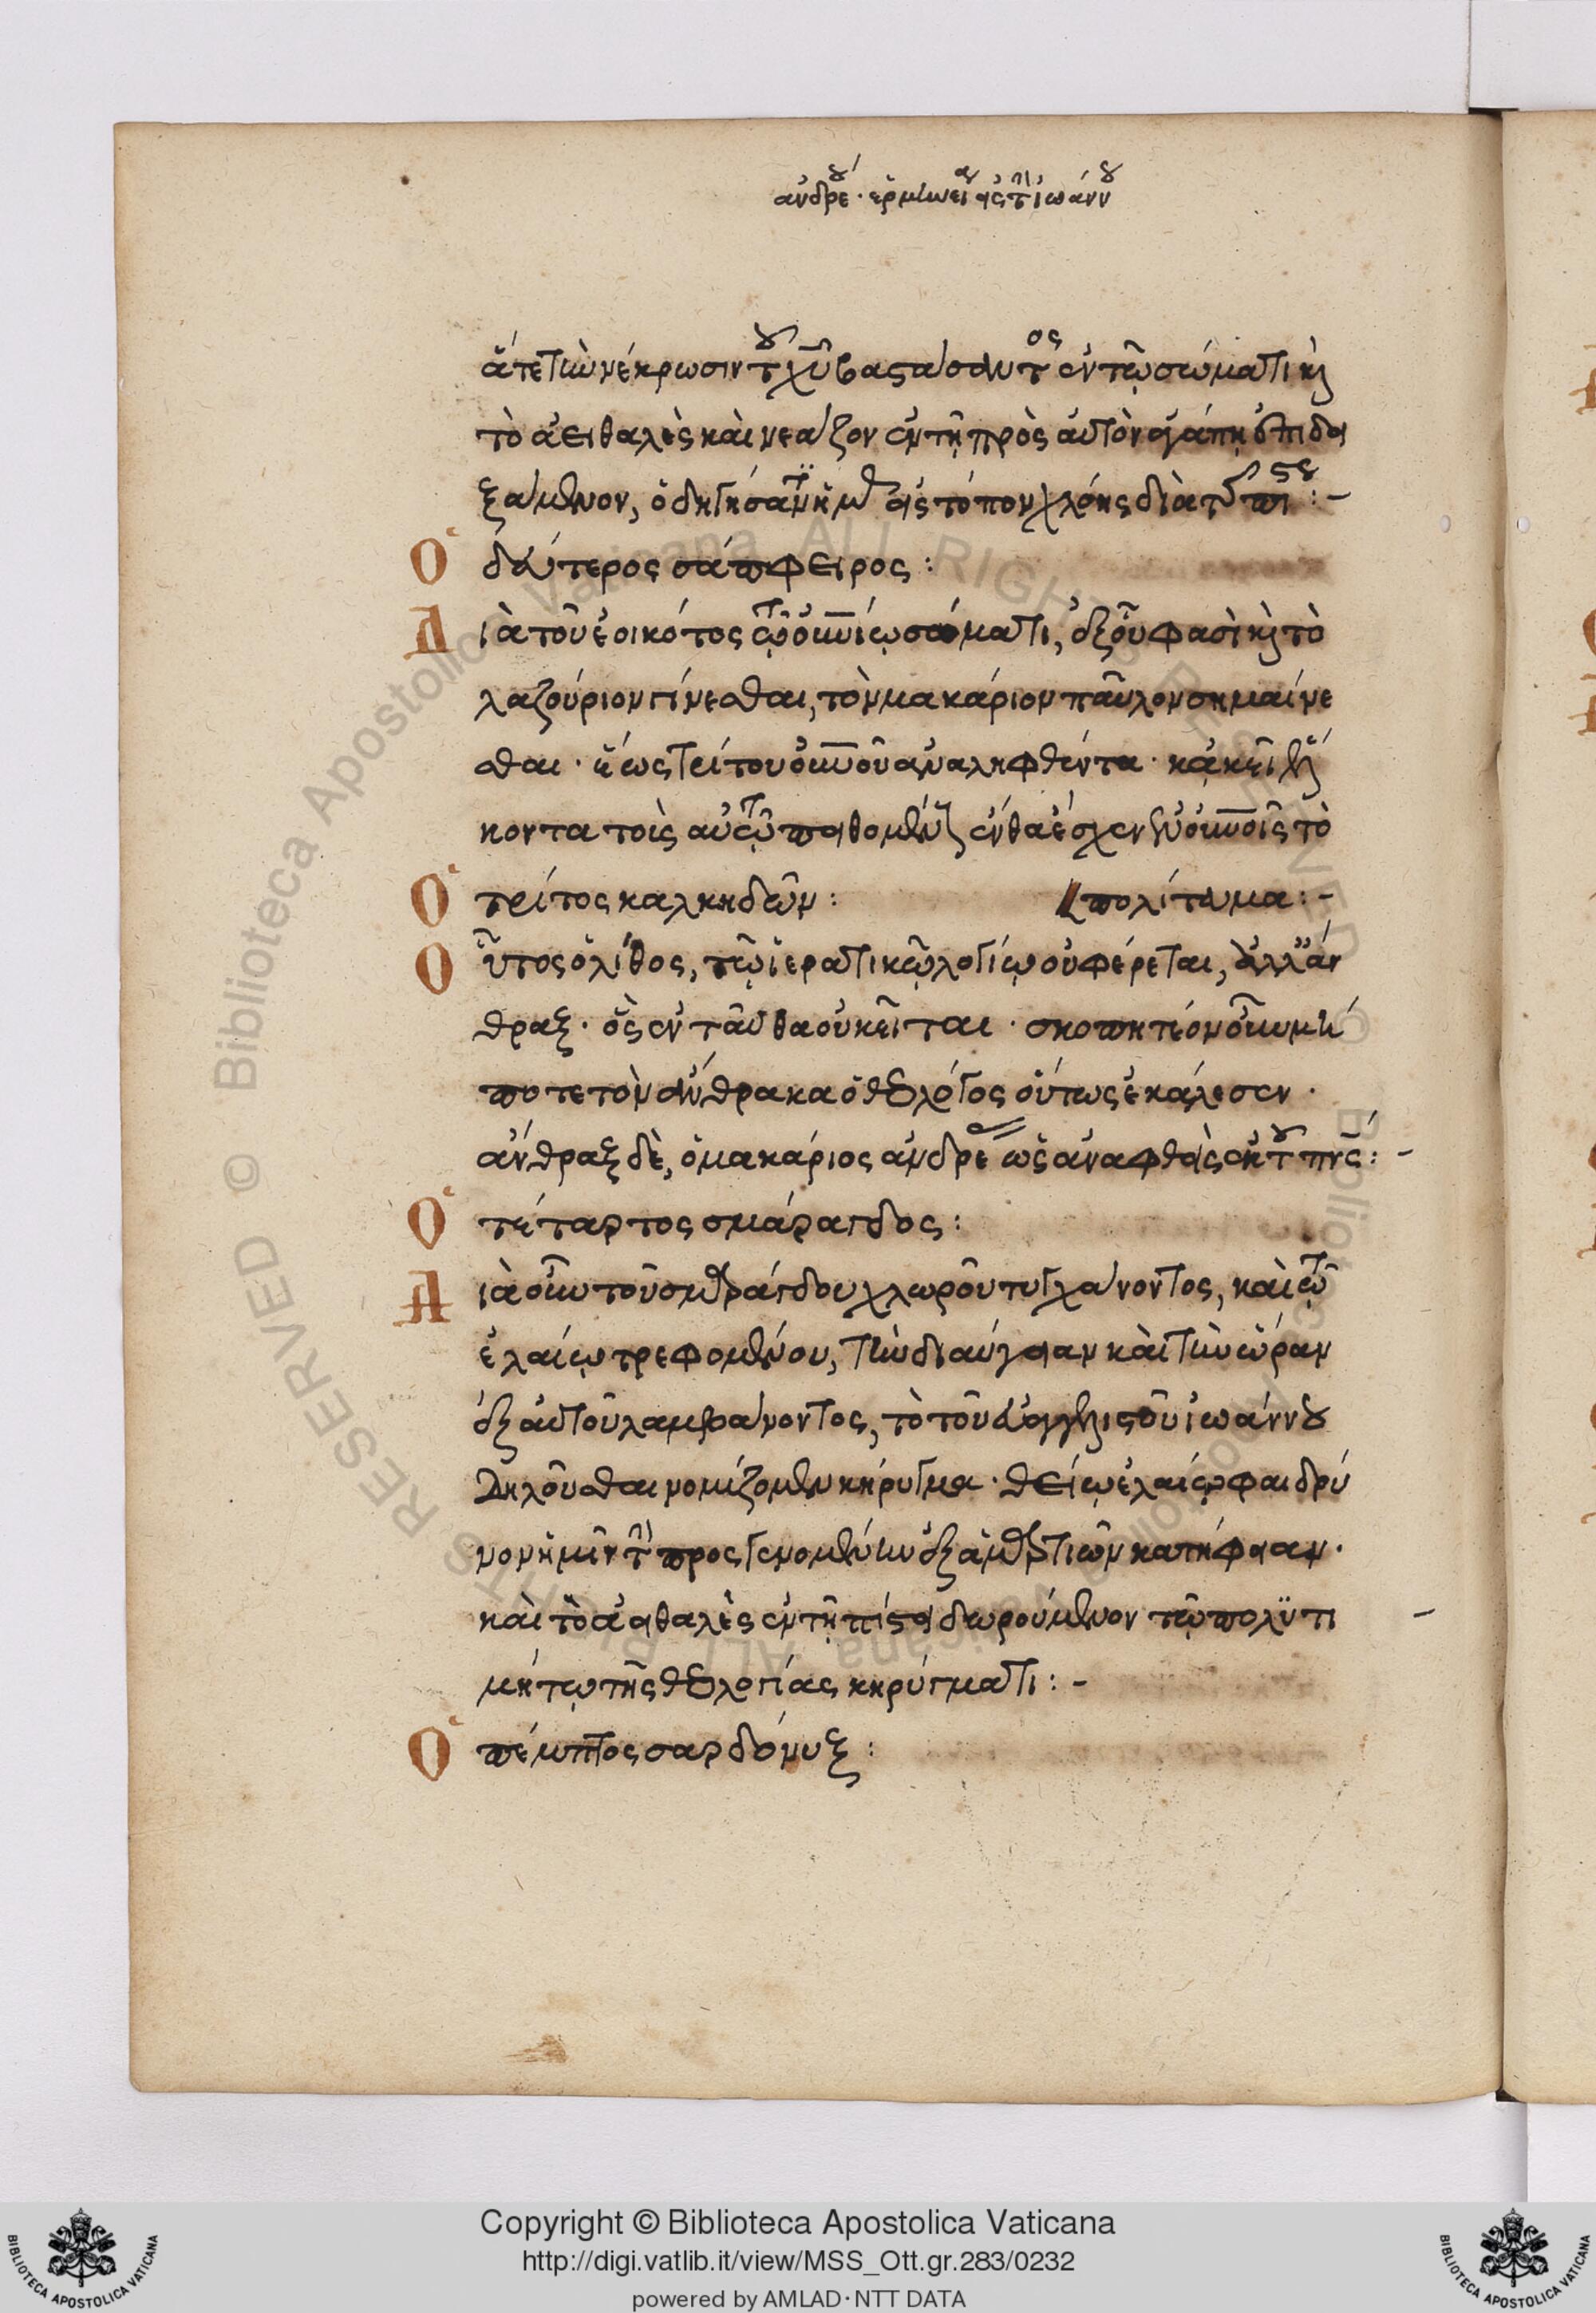 ἀνδρέου· ἑρμηνεία εἰς τὴν ἰωάννου
ἅτε τὴν νέκρωσιν τοῦ χῦ βαστάσαντος ἐν τῷ σώματι καὶ
τὸ ἀειθαλὲς καὶ νεάζον ἐν τῇ πρὸς αὐτὸν ἀγάπῃ ἐπιδει
ξάμενον, ὁδηγῆσαν ἡμᾶς εἰς τόπον χλόης διὰ
Ὁ δεύτερος σάπφειρος:
Διὰ τοῦ ἐοικότος τῷ οὐνίῳ σώματι, ἐξ οὗ φασὶ καὶ τὸ
λαζούριον γίνεσθαι, τὸν μακάριον παῦλον σημαίνε
σθαι· ἕως τρίτου οὐνοῦ ἀναληφθέντα· κἀκεῖ ἕλ
κοντα τοὺς αὐτῷ πειθομένους ἔνθα ἔσχεν ἐν οὐνοῖς τὸ
Ὁ τρίτος καλκηδών:
πολίτευμα:-
Οὗτος ὁ λίθος, τῷ ἱερατικῷ λογίῳ οὐ φέρεται, ἀλλ' ἄν
θραξ· ὃς ἐνταῦθα οὐ κεῖται· σκοπητέον οὖν μή
ποτε τὸν ἄνθρακα ὁ θεολόγος οὕτως ἐκάλεσεν·
ἄνθραξ δὲ, ὁ μακάριος ἀνδρέας ὡς ἀναφθεὶς ἐκ τοῦ πνς:-
Ὁ τέταρτος σμάραγδος:
Διὰ οὖν τοῦ σμαράγδου χλωροῦ τυγχάνοντος, καὶ τῷ
ἐλαίῳ τρεφομένου, τὴν διαύγειαν καὶ τὴν ὥραν
ἐξ αὐτοῦ λαμβάνοντος, τὸ τοῦ εὐαγγελιστοῦ ἰωάννου
δηλοῦσθαι νομίζομεν κήρυγμα· θείῳ ἐλαίῳ φαιδρύ
νον ἡμῖν τὴν προσγενομένην ἐξ ἁμαρτιῶν κατήφειαν·
καὶ τὸ ἀειθαλὲς ἐν τῇ πίστει δωρούμενον τῷ πολυτι
μήτῳ τῆς θεολογίας κηρύγματι:-
Ὁ πέμπτος σαρδόνυξ:
Copyright © Biblioteca Apostolica Vaticana
http://digi.vatlib.it/view/MSS_Ott.gr.283/0232
powered by AMLAD·NTT DATA
BIBLIOTECA APOSTOLICA VATICANA
BIBLIOTECA APOSTOLICA VATICANA